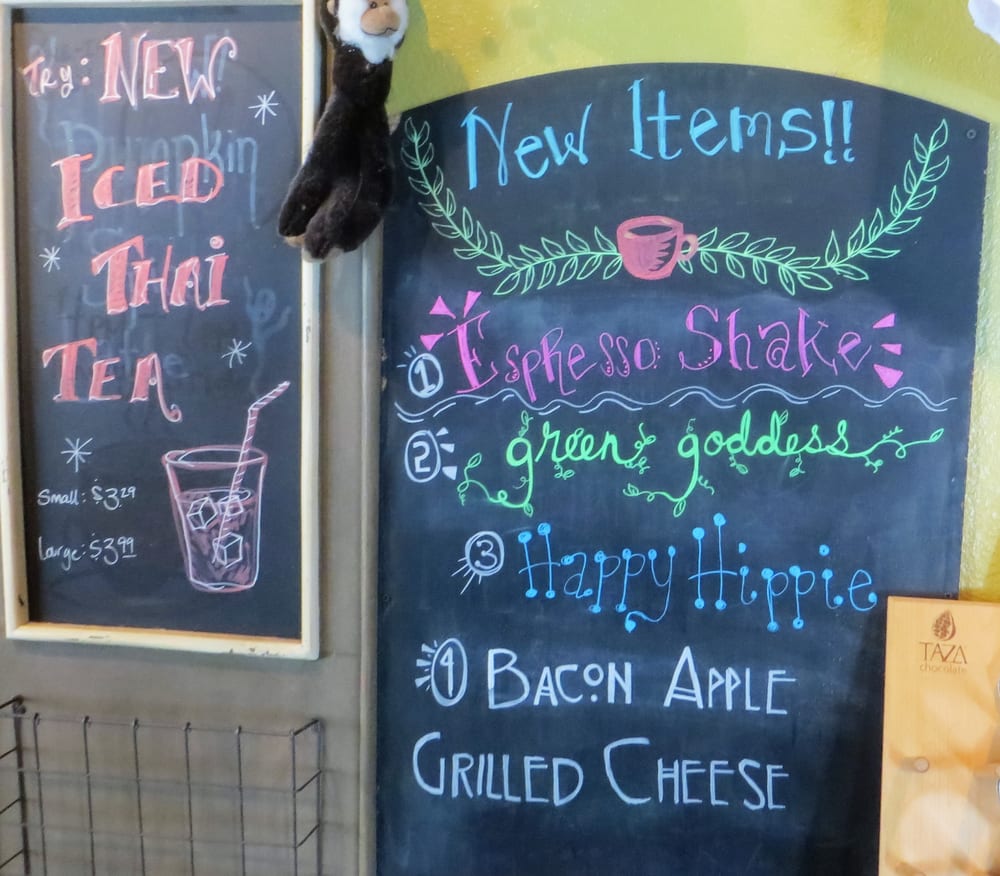 Try: NEW
ICED
THAI
TEA
Small: $3.29
Large: $3.99
Pumpkin
New Items!!
1 Espresso Shake
2 green goddess
3 Happy Hippie
4 BACON APPLE
GRILLED CHEESE
TAZA
chocolate